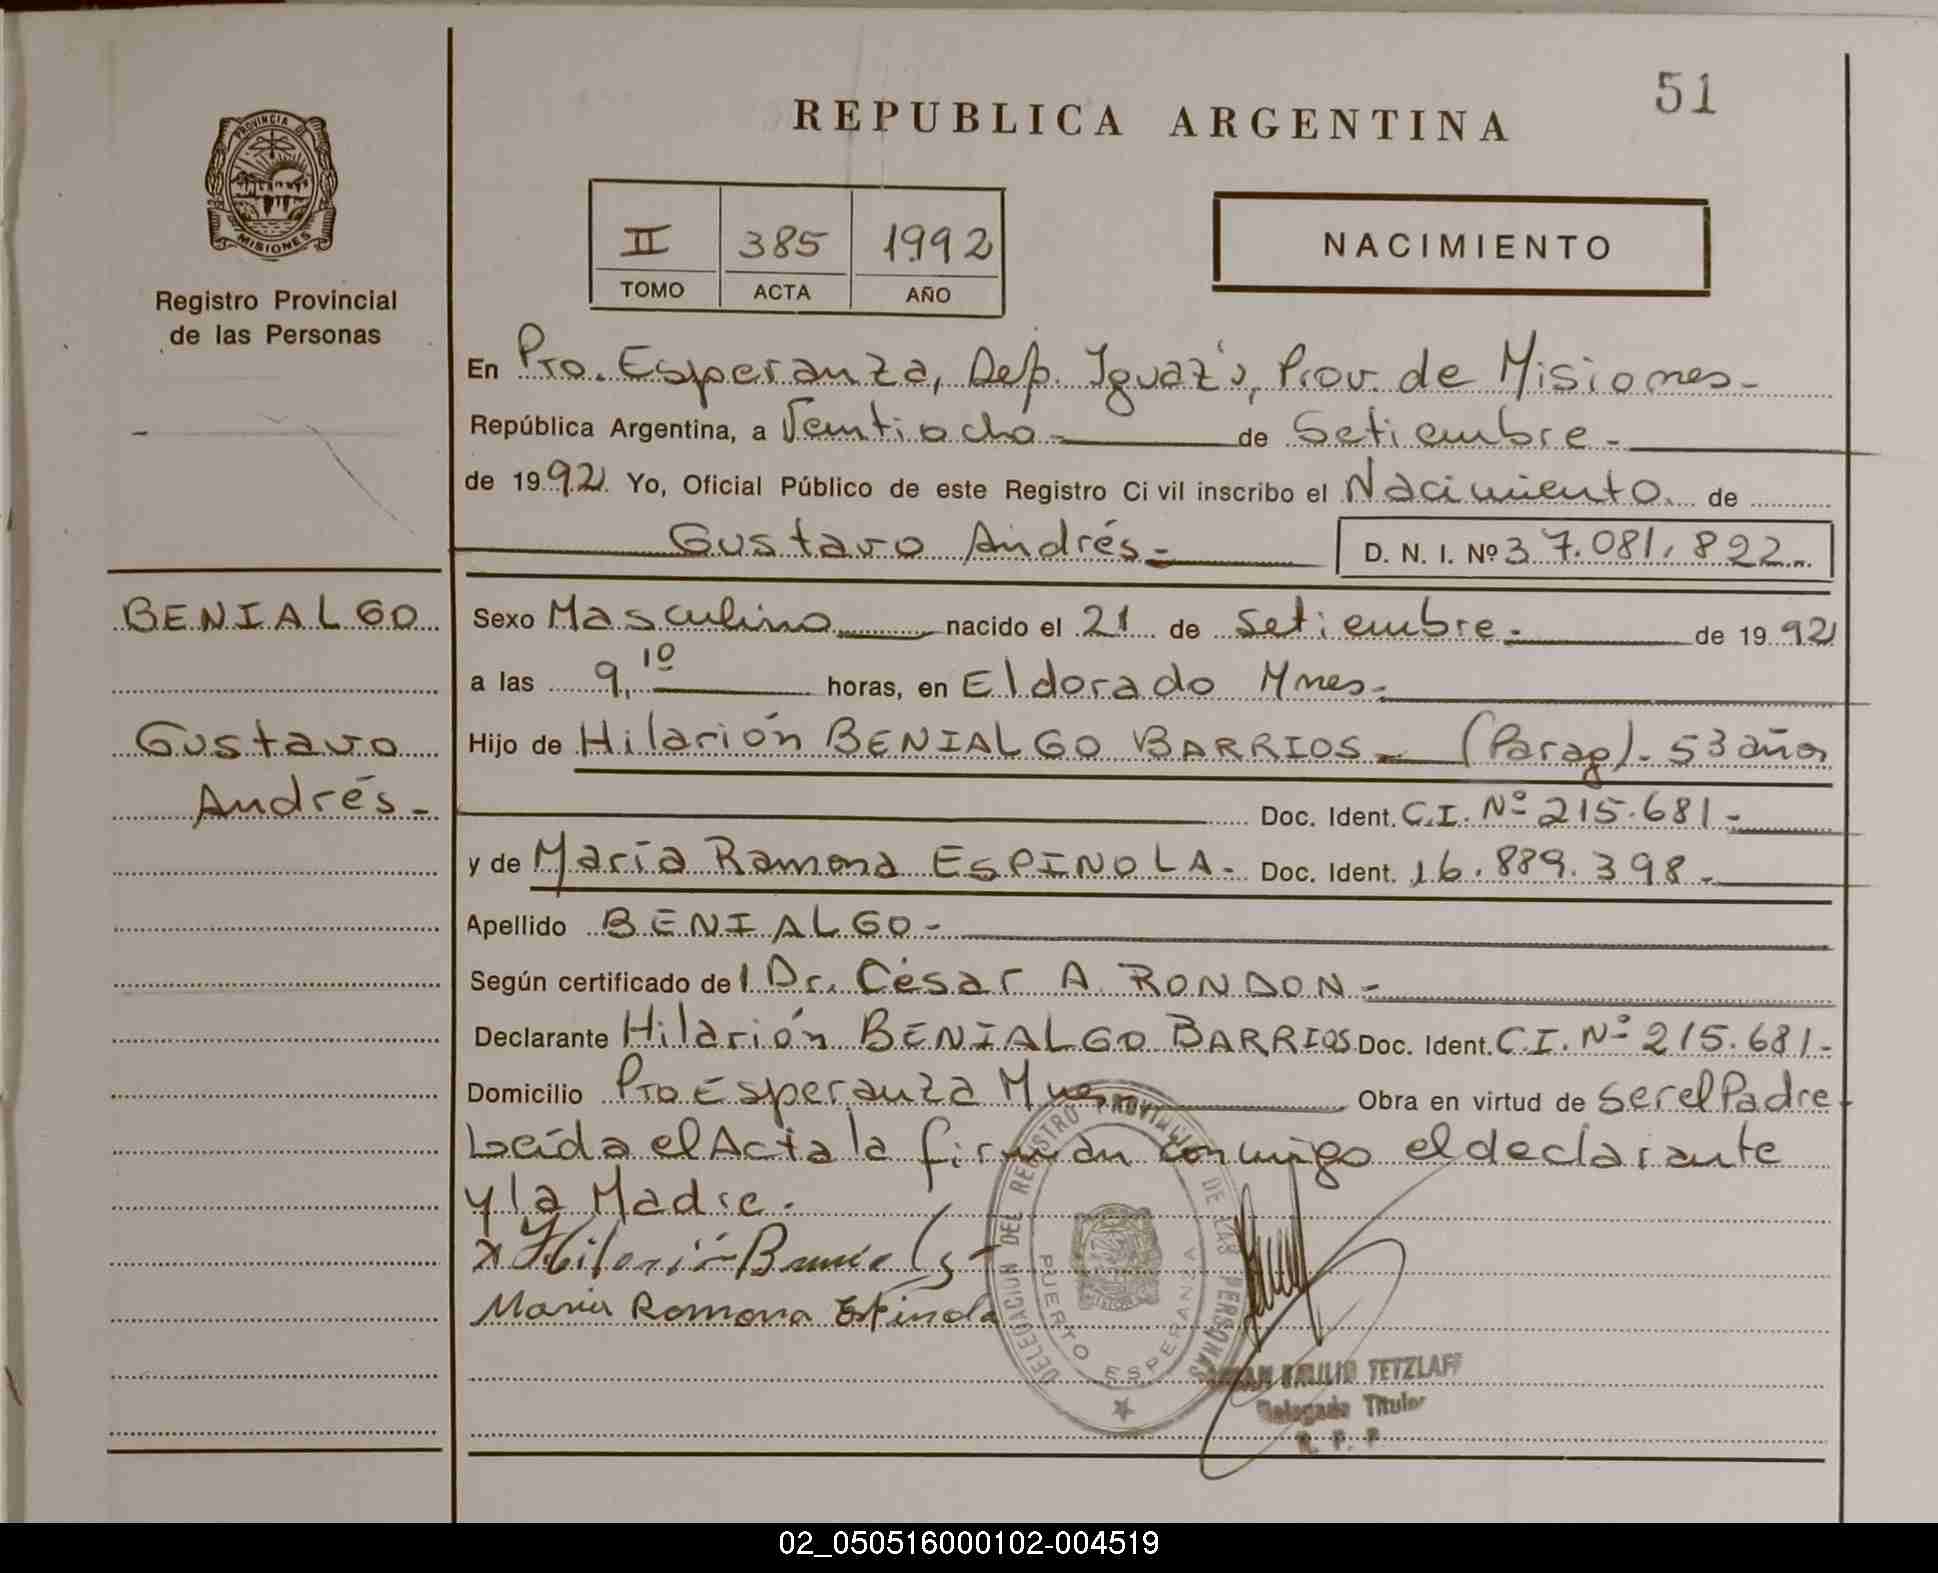 51
REPUBLICA ARGENTINA
PROVINCIA DE
MISIONES
Registro Provincial
de las Personas
II 385 1992
TOMO ACTA AÑO
NACIMIENTO
En Pto. Esperanza, Dep. Iguazú, Prov. de Misiones-
República Argentina, a Veintiocho- de Setiembre-
de 1992 Yo, Oficial Público de este Registro Civil inscribo el Nacimiento de
Gustavo Andrés- D. N. I. Nº 37.081.822-
BENIALGO
Gustavo
Andrés-
Sexo Masculino nacido el 21 de Setiembre- de 1992
a las 9,10 horas, en Eldorado Mnes-
Hijo de Hilarión BENIALGO BARRIOS- (Parag)- 53 años
Doc. Ident. C.I. Nº 215.681-
y de María Ramona ESPINOLA- Doc. Ident. 16.889.398-
Apellido BENIALGO-
Según certificado del Dr. César A. RONDON-
Declarante Hilarión BENIALGO BARRIOS Doc. Ident. C.I. Nº 215.681-
Domicilio Pto Esperanza Mnes- Obra en virtud de ser el Padre
Leída el Acta la firman conmigo el declarante
y la Madre.
x Hilarión
Maria Ramona Espinola
DELEGACION DEL REGISTRO PROVINCIAL DE LAS PERSONAS
PUERTO ESPERANZA
TETZLAFF
Delegado Titular
R. P. P
02_050516000102-004519